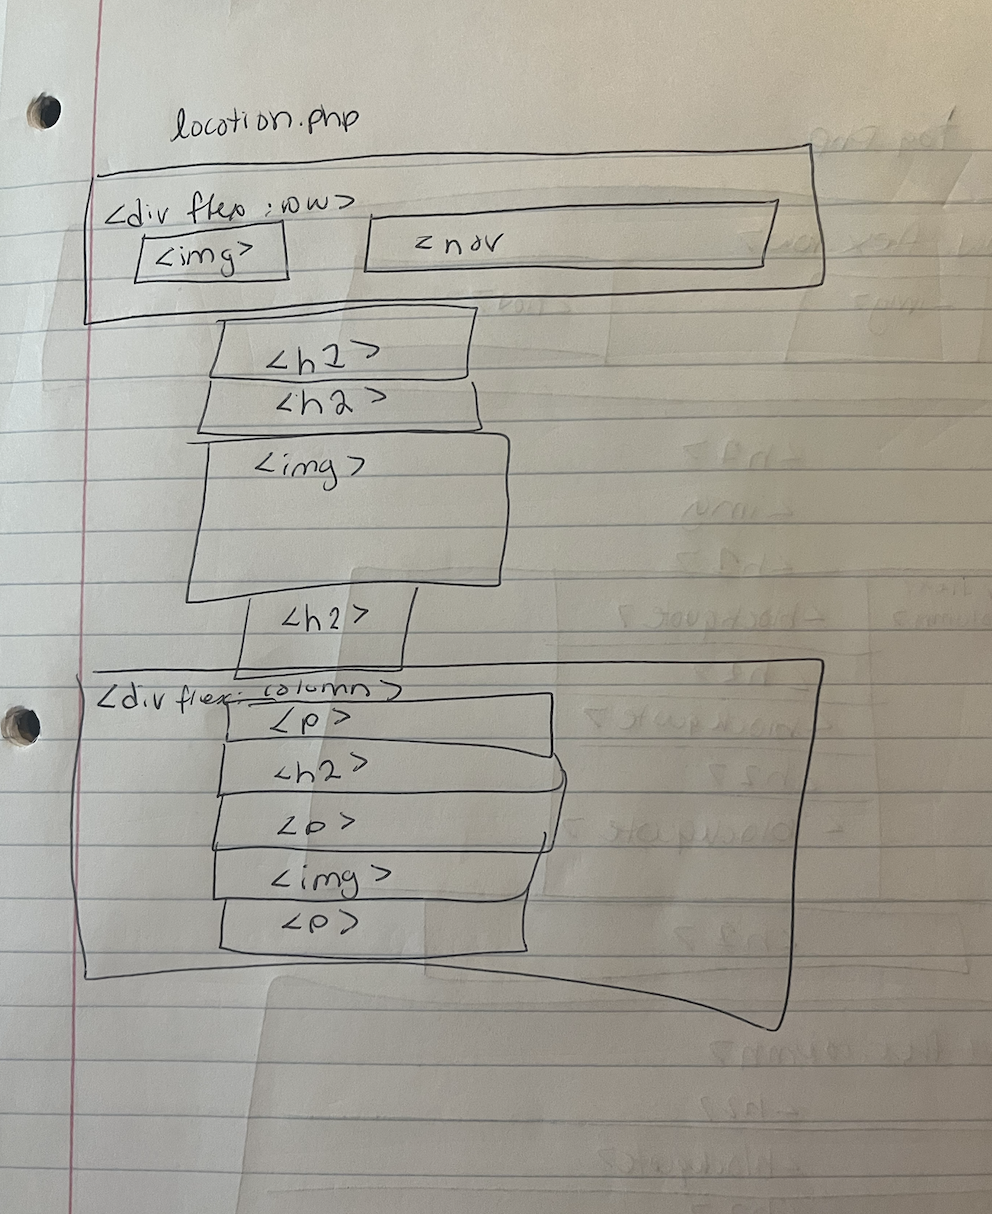 location.php
<div flex :row>
<img> <nav
<h2>
<h2>
<img>
<h2>
<div flex: column>
<p>
<h2>
<p>
<img>
<p>